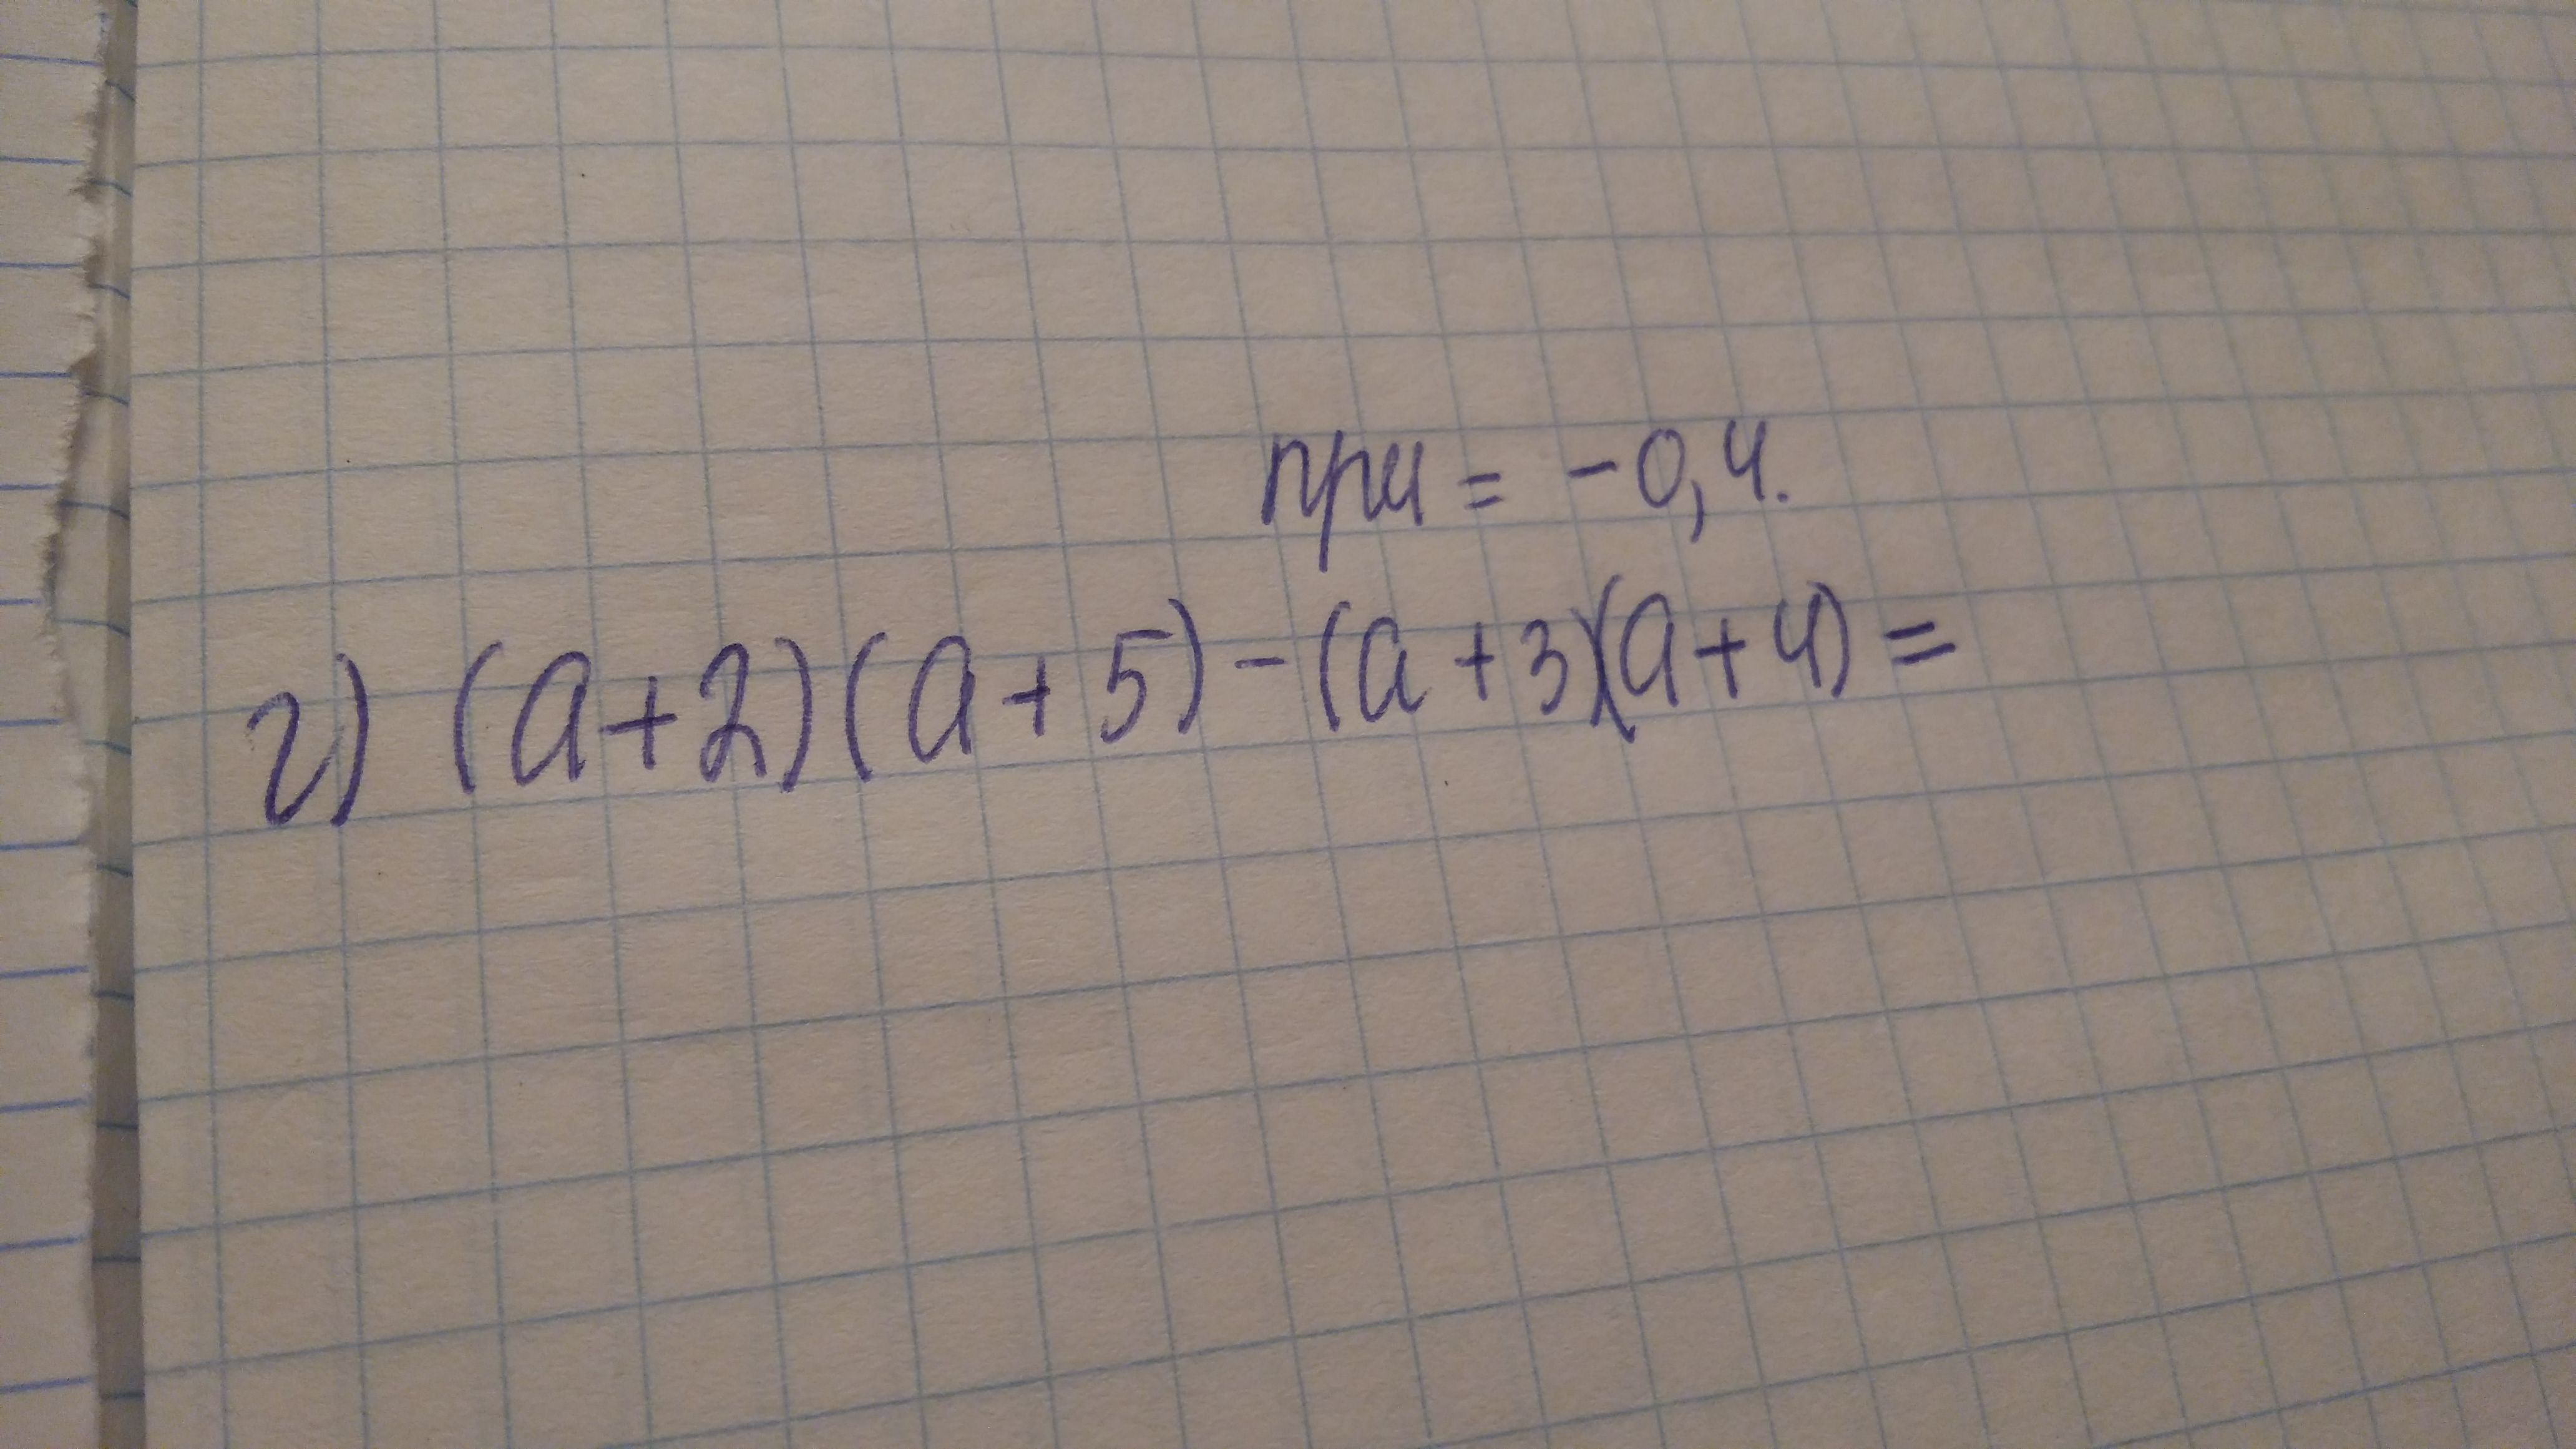 при = -0,4.
г) (a+2)(a+5)-(a+3)(a+4)=